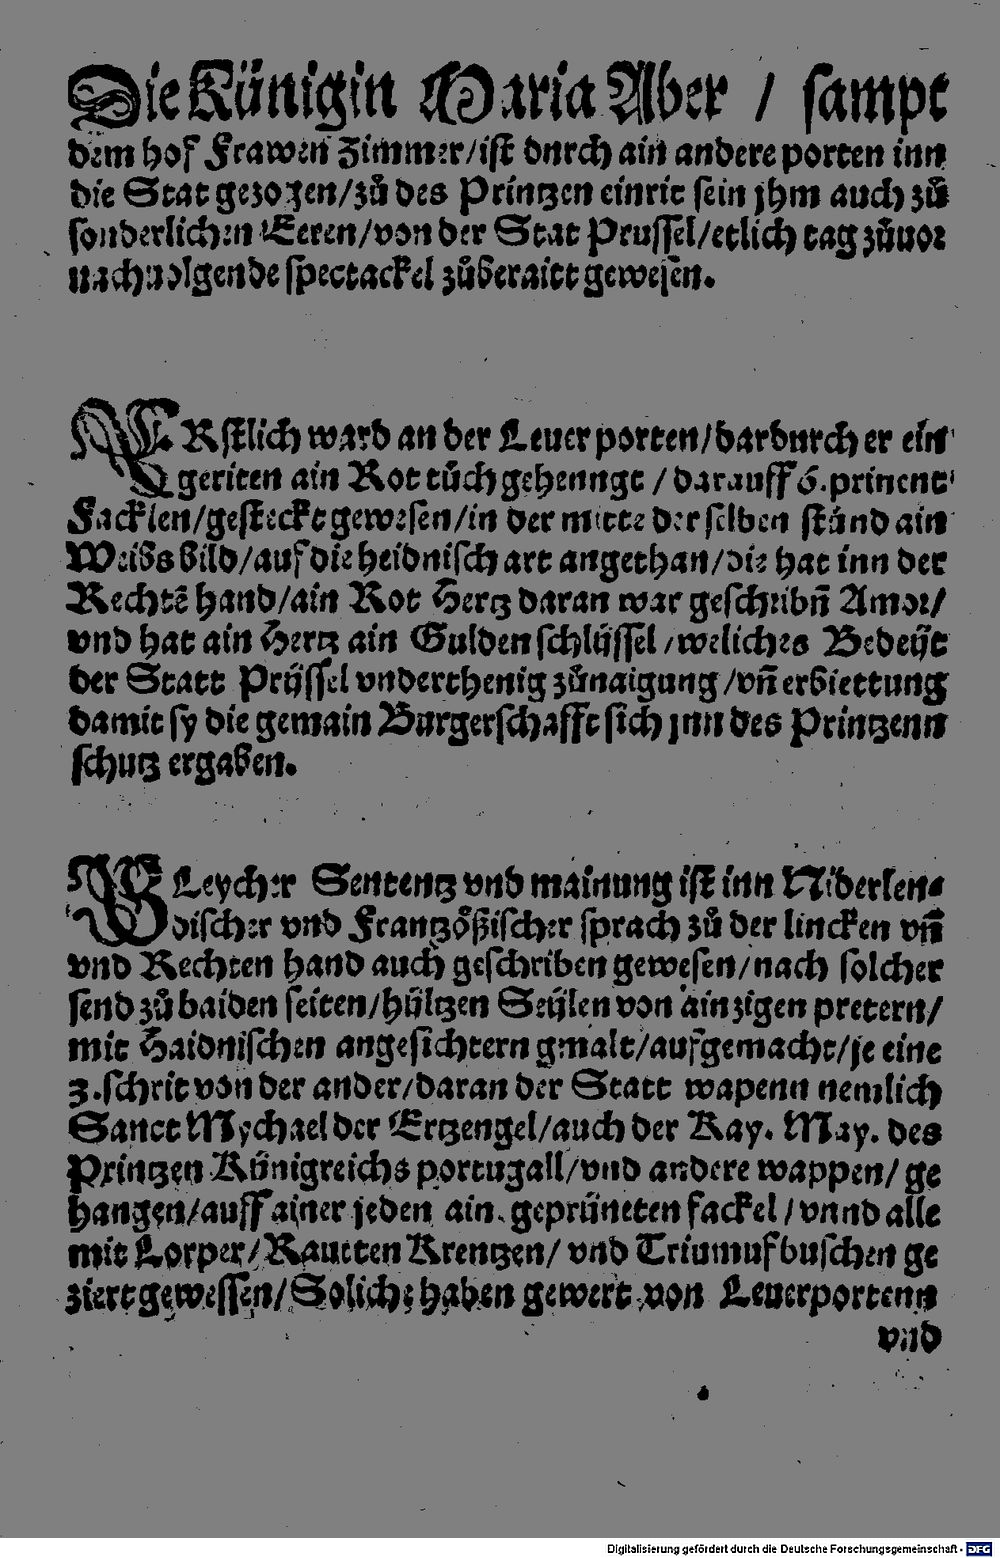 Die Künigin Maria Aber / sampt
dem hof Frawen Zimmer/ist durch ain andere porten inn
die Stat gezogen/zů des Printzen einrit sein jhm auch zů
sonderlichen Eeren/von der Stat Prussel/etlich tag zůuor
nachuolgende spectackel zůberaitt gewesen.
ERstlich ward an der Leuer porten/dardurch er ein
geriten ain Rot tůch gehenngt / darauff 6. prinent
Facklen/gesteckt gewesen/in der mitte der selben stůnd ain
Weibs bild/auf die heidnisch art angethan/die hat inn der
Rechtē hand/ain Rot Hertz daran war geschribn̄ Amor/
vnd hat ain Hertz ain Gulden schlÿssel /weliches Bedeÿt
der Statt Prÿssel vnderthenig zůnaigung /vn̄ erbiettung
damit sy die gemain Burgerschafft sich jnn des Printzenn
schutz ergaben.
WEleycher Sententz vnd mainung ist inn Niderlen-
discher vnd Frantzößischer sprach zů der lincken vn̄
vnd Rechten hand auch geschriben gewesen/nach solcher
send zů baiden seiten/hÿltzen Seÿlen von ainzigen pretern/
mit Haidnischen angesichtern gmalt/aufgemacht/je eine
z.schrit von der ander/daran der Statt wapenn nemlich
Sanct Mychael der Ertzengel/auch der Kay. May. des
Printzen Künigreichs portugall/vnd andere wappen/ ge
hangen/auff ainer jeden ain geprüneten fackel / vnnd alle
mit Lorper/Rautten Krentzen/ vnd Triumufbuschen ge
ziert gewessen/Soliche haben gewert von Leuerportenn
vnd
Digitalisierung gefördert durch die Deutsche Forschungsgemeinschaft - DFG